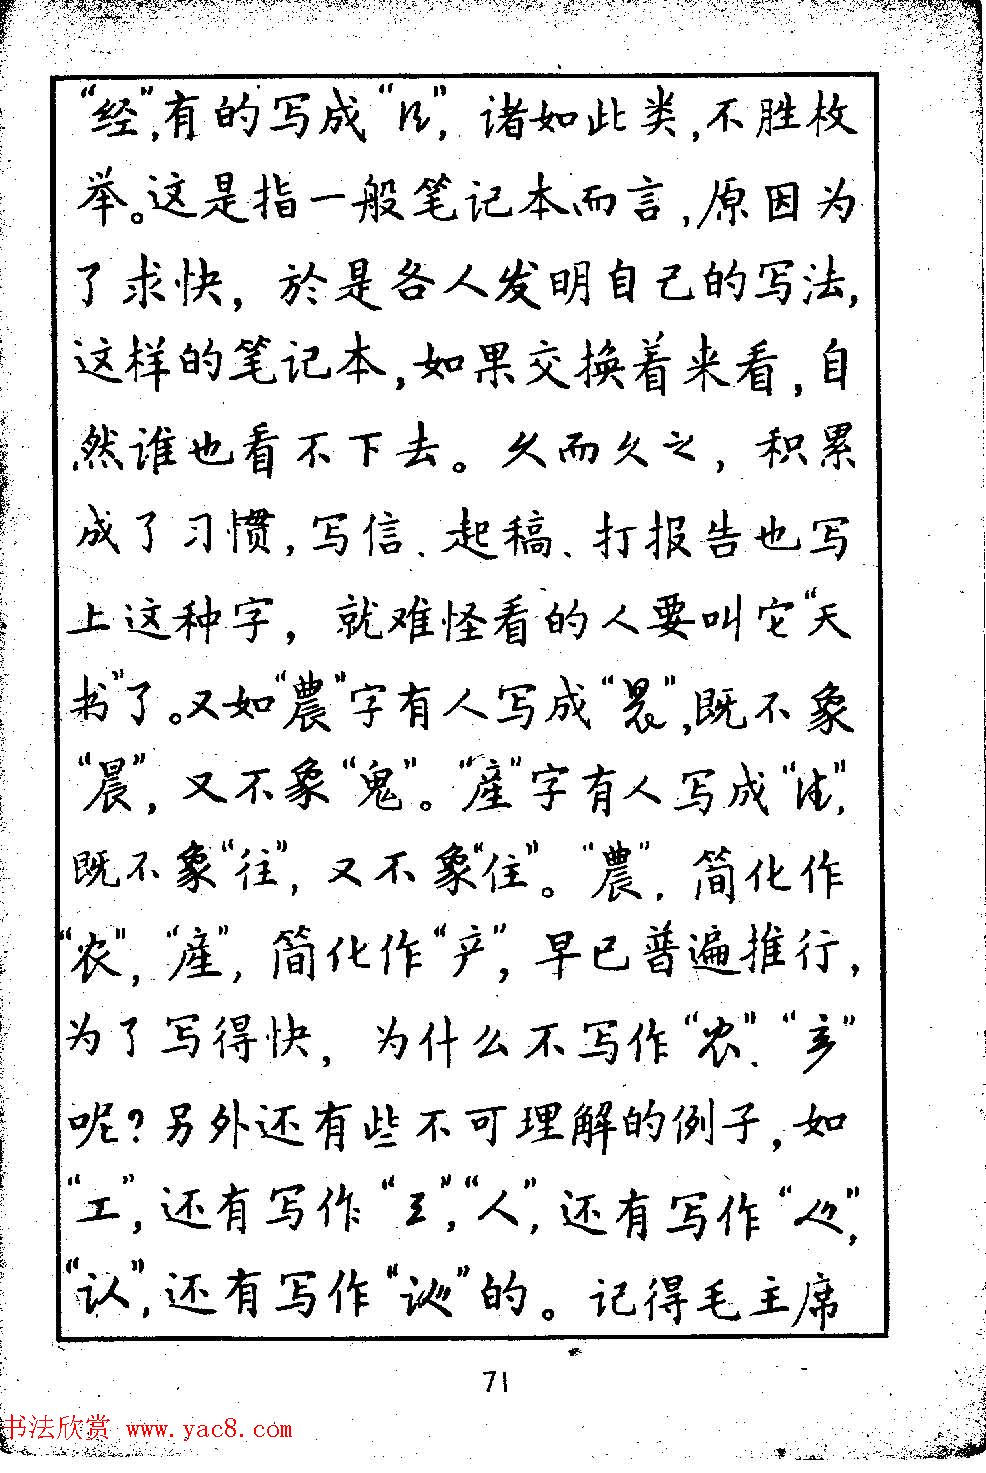 “经”，有的写成“”，诸如此类，不胜枚
举。这是指一般笔记本而言，原因为
了求快，於是各人发明自己的写法，
这样的笔记本，如果交换着来看，自
然谁也看不下去。久而久之，积累
成了习惯，写信、起稿、打报告也写
上这种字，就难怪看的人要叫它“天
书”了。又如“農”字有人写成“”，既不象
“晨”，又不象“鬼”。“産”字有人写成“”，
既不象“往”，又不象“住”。“農”，简化作
“农”，“産”，简化作“产”，早已普遍推行，
为了写得快，为什么不写作“农”、“产”
呢？另外还有些不可理解的例子，如
“工”，还有写作“”，“人”，还有写作“”，
“认”，还有写作“”的。记得毛主席
71
书法欣赏 www.yac8.com